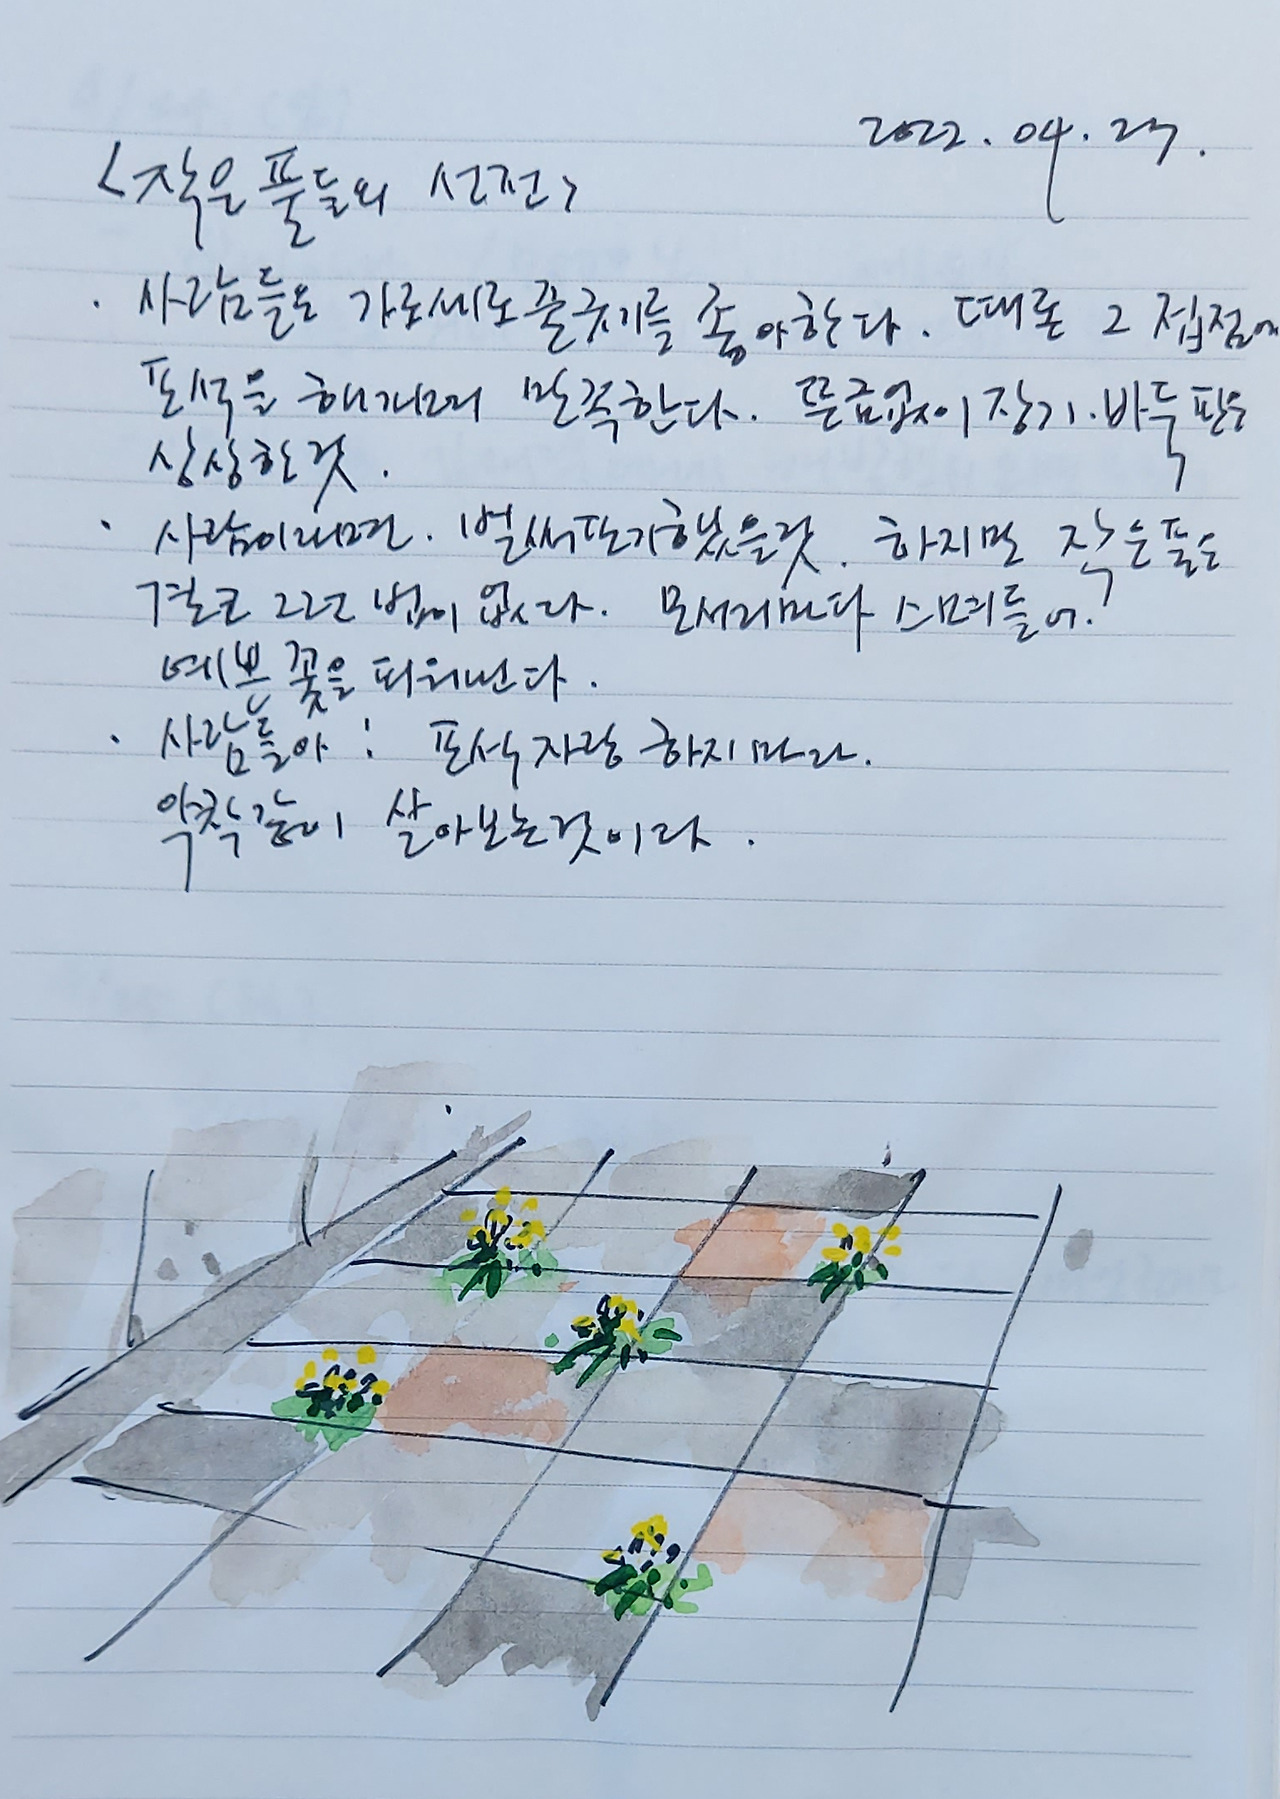 2022. 04. 27.
<작은 풀들의 선전>
· 사람들은 가로세로 줄긋기를 좋아한다. 때론 그 접점에
포석을 해가며 만족한다. 뜬금없이 장기·바둑판을
상상한 것.
· 사람이라면. 벌써 포기했을 것. 하지만 작은 풀은
결코 그런 법이 없다. 모서리마다 스며들어?
예쁜 꽃을 피워낸다.
· 사람들아! 포석 자랑 하지 마라.
악착같이 살아보는 것이다.